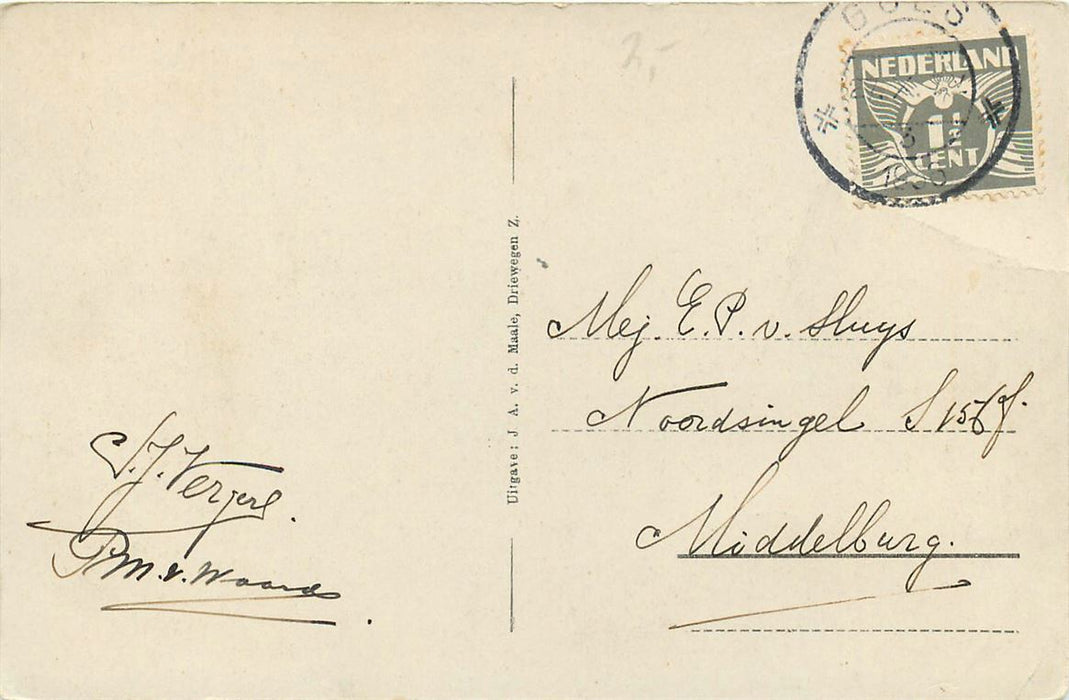 2,-
GOES
NEDERLAND
1½
CENT
Uitgave: J. A. v. d. Maale, Driewegen Z.
Mej. E. P. v. Sluys
Noordsingel
Middelburg.
P. M. v. Waarde